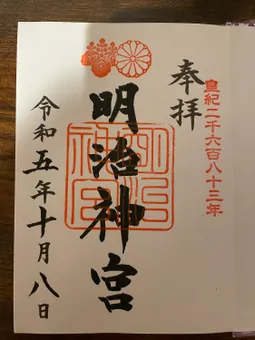 皇紀二千六百八十三年
奉拝
明治神宮
明治神宮
令和五年十月八日